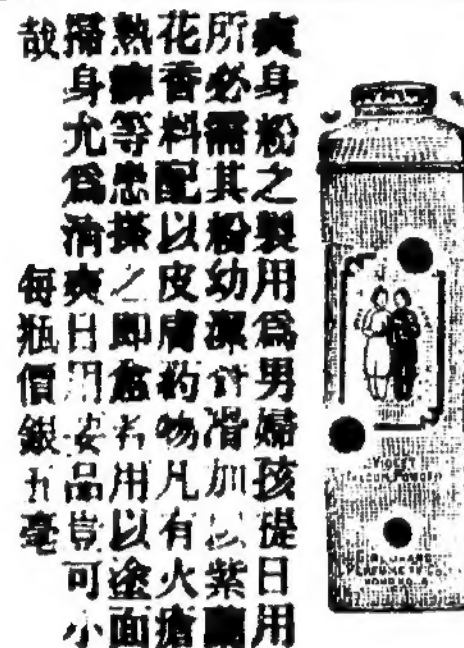 爽身粉之製用爲男婦孩提日用
所必需其粉幼潔滑加以紫蘭
花香料配以皮膚葯物凡有火瘡
熱等患搽之即愈若用以塗面
掃身尤爲清爽日用妥品豈可小
哉 每瓶價銀五毫
VIOLET
TALCUM POWDER
GIRL BRAND
PERFUMERY CO.
HONGKONG